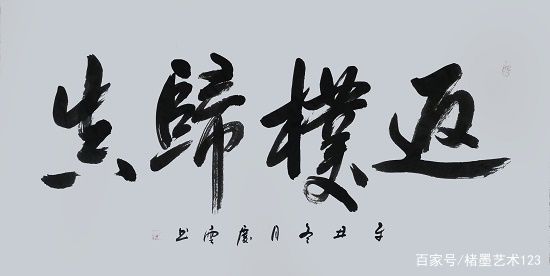 返樸歸真
辛丑冬月慶雲书
百家号/楮墨艺术123